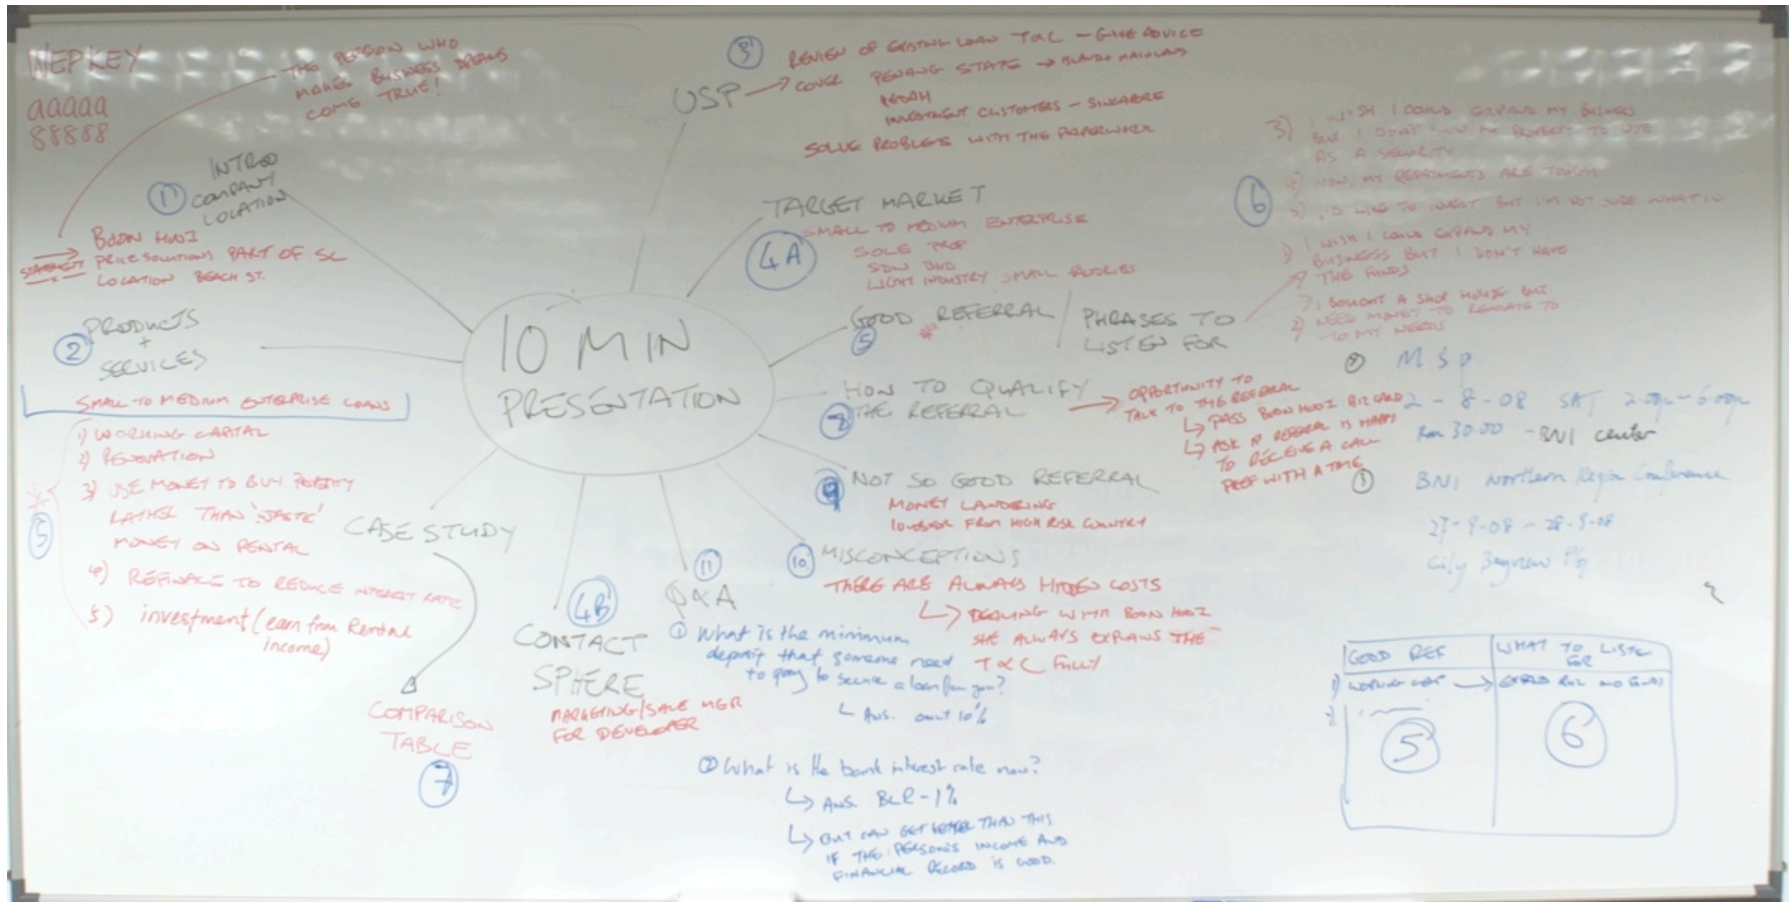 WEPKEY
aaaaa
88888
THE PERSON WHO
MAKES BUSINESS DREAMS
COME TRUE!
1
INTRO
COMPANY
LOCATION
BOON HOOI
PRICE SOLUTIONS PART OF SC
LOCATION BEACH ST.
STATEMENT
2
PRODUCTS
+
SERVICES
SMALL TO MEDIUM ENTERPRISE LOANS
1) WORKING CAPITAL
2) RENOVATION
3) USE MONEY TO BUY PROPERTY
RATHER THAN 'WASTE'
MONEY ON RENTAL
4) REFINANCE TO REDUCE INTEREST RATE
5) investment (earn from Rental
income)
5
10 MIN
PRESENTATION
3
USP
REVIEW OF EXISTING LOAN T&C - GIVE ADVICE
COVER PENANG STATE → ISLAND MAINLAND
KEDAH
INVESTMENT CUSTOMERS - SINGAPORE
SOLVE PROBLEMS WITH THE PAPERWORK
TARGET MARKET
4A
SMALL TO MEDIUM ENTERPRISE
SOLE PROP
SDN BHD
LIGHT INDUSTRY SMALL
GOOD REFERRAL
5
PHRASES TO
LISTEN FOR
6
3) I WISH I COULD EXPAND MY BUSINESS
BUT I DON'T MY PROPERTY TO USE
AS A SECURITY
4) WOW, MY REPAYMENTS ARE TOUGH
5) I'D LIKE TO INVEST BUT I'M NOT SURE WHAT IN
1) I WISH I COULD EXPAND MY
BUSINESS BUT I DON'T HAVE
THE FUNDS
2) I BOUGHT A SHOP HOUSE BUT
NEED MONEY TO RENOVATE TO
TO MY NEEDS
HOW TO QUALIFY
THE REFERRAL
8
OPPORTUNITY TO
TALK TO THE REFERRAL
PASS BOON HOOI BIZ CARD
ASK IF REFERRAL IS HAPPY
TO RECEIVE A CALL
PREF WITH A TIME
MSP
2-8-08 SAT 2.00pm-6.00pm
Rm 30.00 - BNI center
BNI Northern Region Conference
27-9-08 - 28-9-08
City Bayview Pg
9
NOT SO GOOD REFERRAL
MONEY LANDERING
INVESTOR FROM HIGH RISK COUNTRY
10
MISCONCEPTIONS
THERE ARE ALWAYS HIDDEN COSTS
DEALING WITH BOON HOOI
SHE ALWAYS EXPLAINS THE
T&C FULLY
11
Q&A
① What is the minimum
deposit that someone need
to pay to secure a loan from you?
Ans. only 10%
② What is the bank interest rate now?
Ans. BLR-1%
BUT CAN GET BETTER THAN THIS
IF THE PERSON'S INCOME AND
FINANCIAL RECORD IS GOOD.
4B
CONTACT
SPHERE
MARKETING/SALE MGR
FOR DEVELOPER
CASE STUDY
COMPARISON
TABLE
7
GOOD REF WHAT TO LISTEN
FOR
1) WORKING CAP → EXPAND BIZ NO FUNDS
2)
5 6